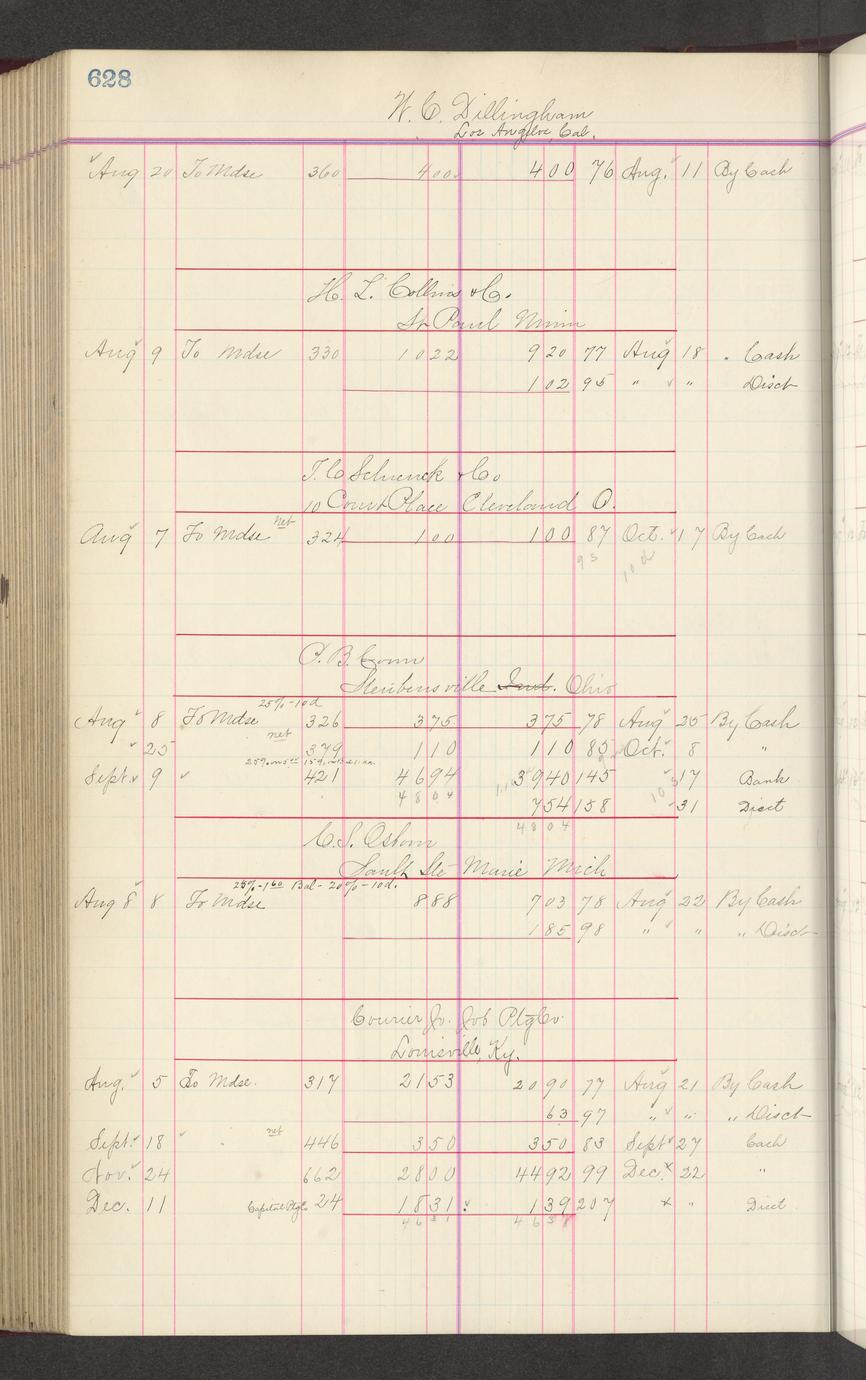 628
W. C. Dillingham
Los Angeles, Cal.
Aug 20 To Mdse 360 400 400 76 Aug. 11 By Cash
H. L. Collins & Co.
St Paul Minn
Aug 9 To Mdse 330 1022 920 77 Aug 18 . Cash
102 95 " " Disct
T. C Schenck & Co
10 Court Place Cleveland O.
net
Aug 7 To Mdse 324 100 100 87 Oct. 17 By Cash
95 10 d
C. B. Conn
Steubensville Ind. Ohio
25% - 10 d
Aug 8 To Mdse 326 375 375 78 Aug 25 By Cash
net
25 379 110 110 85 Oct. 8 "
Sept. 9 421 4694 3940 145 17 Bank
4804 754 158 31 Disct
4804
C. S. Osborn
Sault Ste Marie Mich
25% - 1 60 Bal - 20% - 10 d.
Aug 8 8 To Mdse 888 703 78 Aug 22 By Cash
185 98 " " " Disct
Courier Jo. Job Ptg Co.
Louisville, Ky.
Aug. 5 To Mdse. 317 2153 2090 77 Aug 21 By Cash
63 97 " " " Disct
net
Sept. 18 446 350 350 83 Sept 27 Cash
Nov. 24 662 2800 4492 99 Dec. 22 "
Dec. 11 Capital Ptg Co 24 1831 139 207 x " Disct
4631 4631